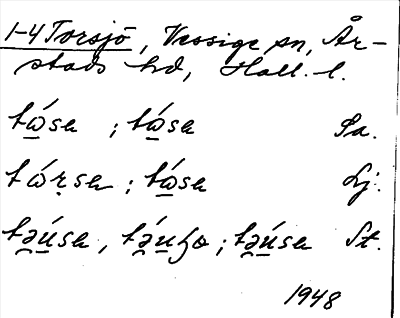 1-4 Torsjö, Vessige sn, År-
stads hd, Hall. l.
tώ̲sa ; tώ̲sa Sa.
tώṛsa ; tώ̲sa Lj.
tə̯ú̲sa, tə̯́u̲ʒo ; tə̯ú̲sa St.
1948